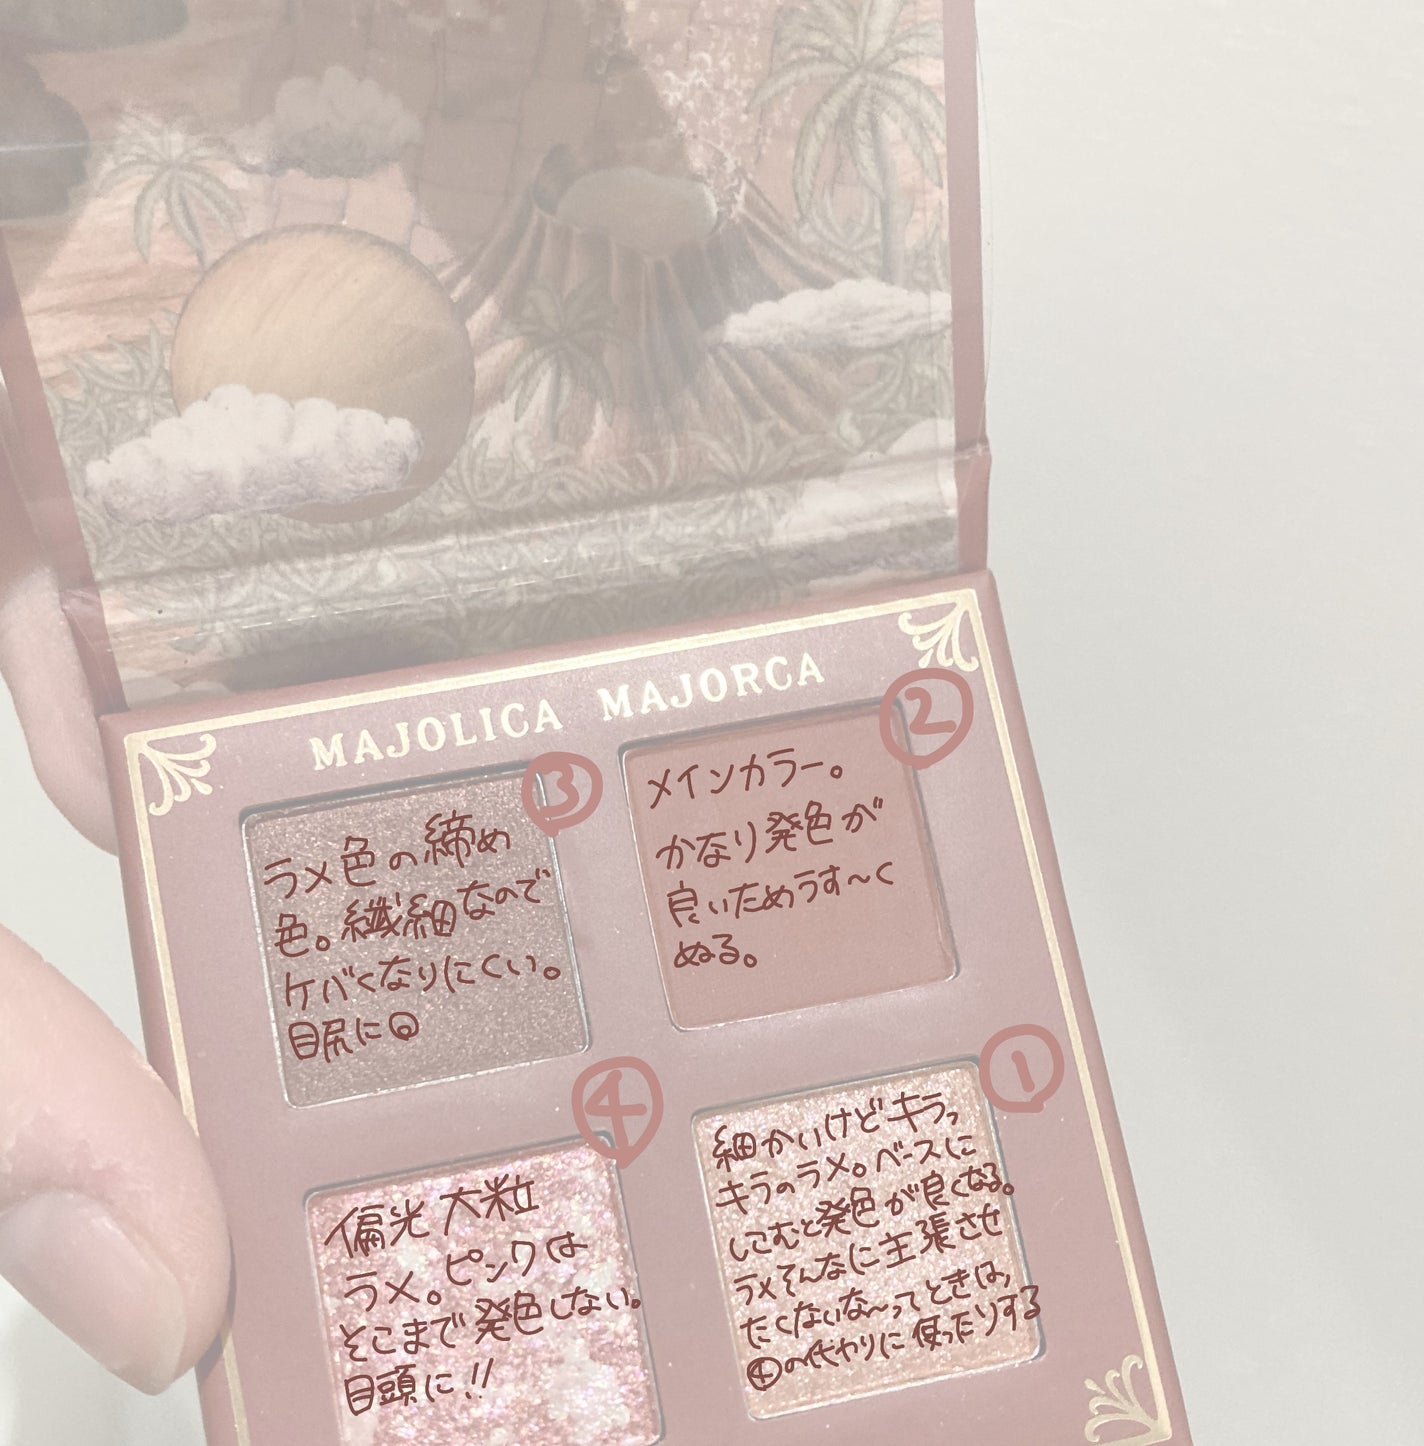 MAJOLICA MAJORCA
③
ラメ色の締め
色。繊細なので
ケバくなりにくい。
目尻に◎
②
メインカラー。
かなり発色が
良いためうす〜く
ぬる。
④
偏光大粒
ラメ。ピンクは
そこまで発色しない。
目頭に!!
①
細かいけどキラっ
キラのラメ。ベースに
しこむと発色が良くなる。
ラメそんなに主張させ
たくないな〜ってときは、
④の代わりに使ったりする